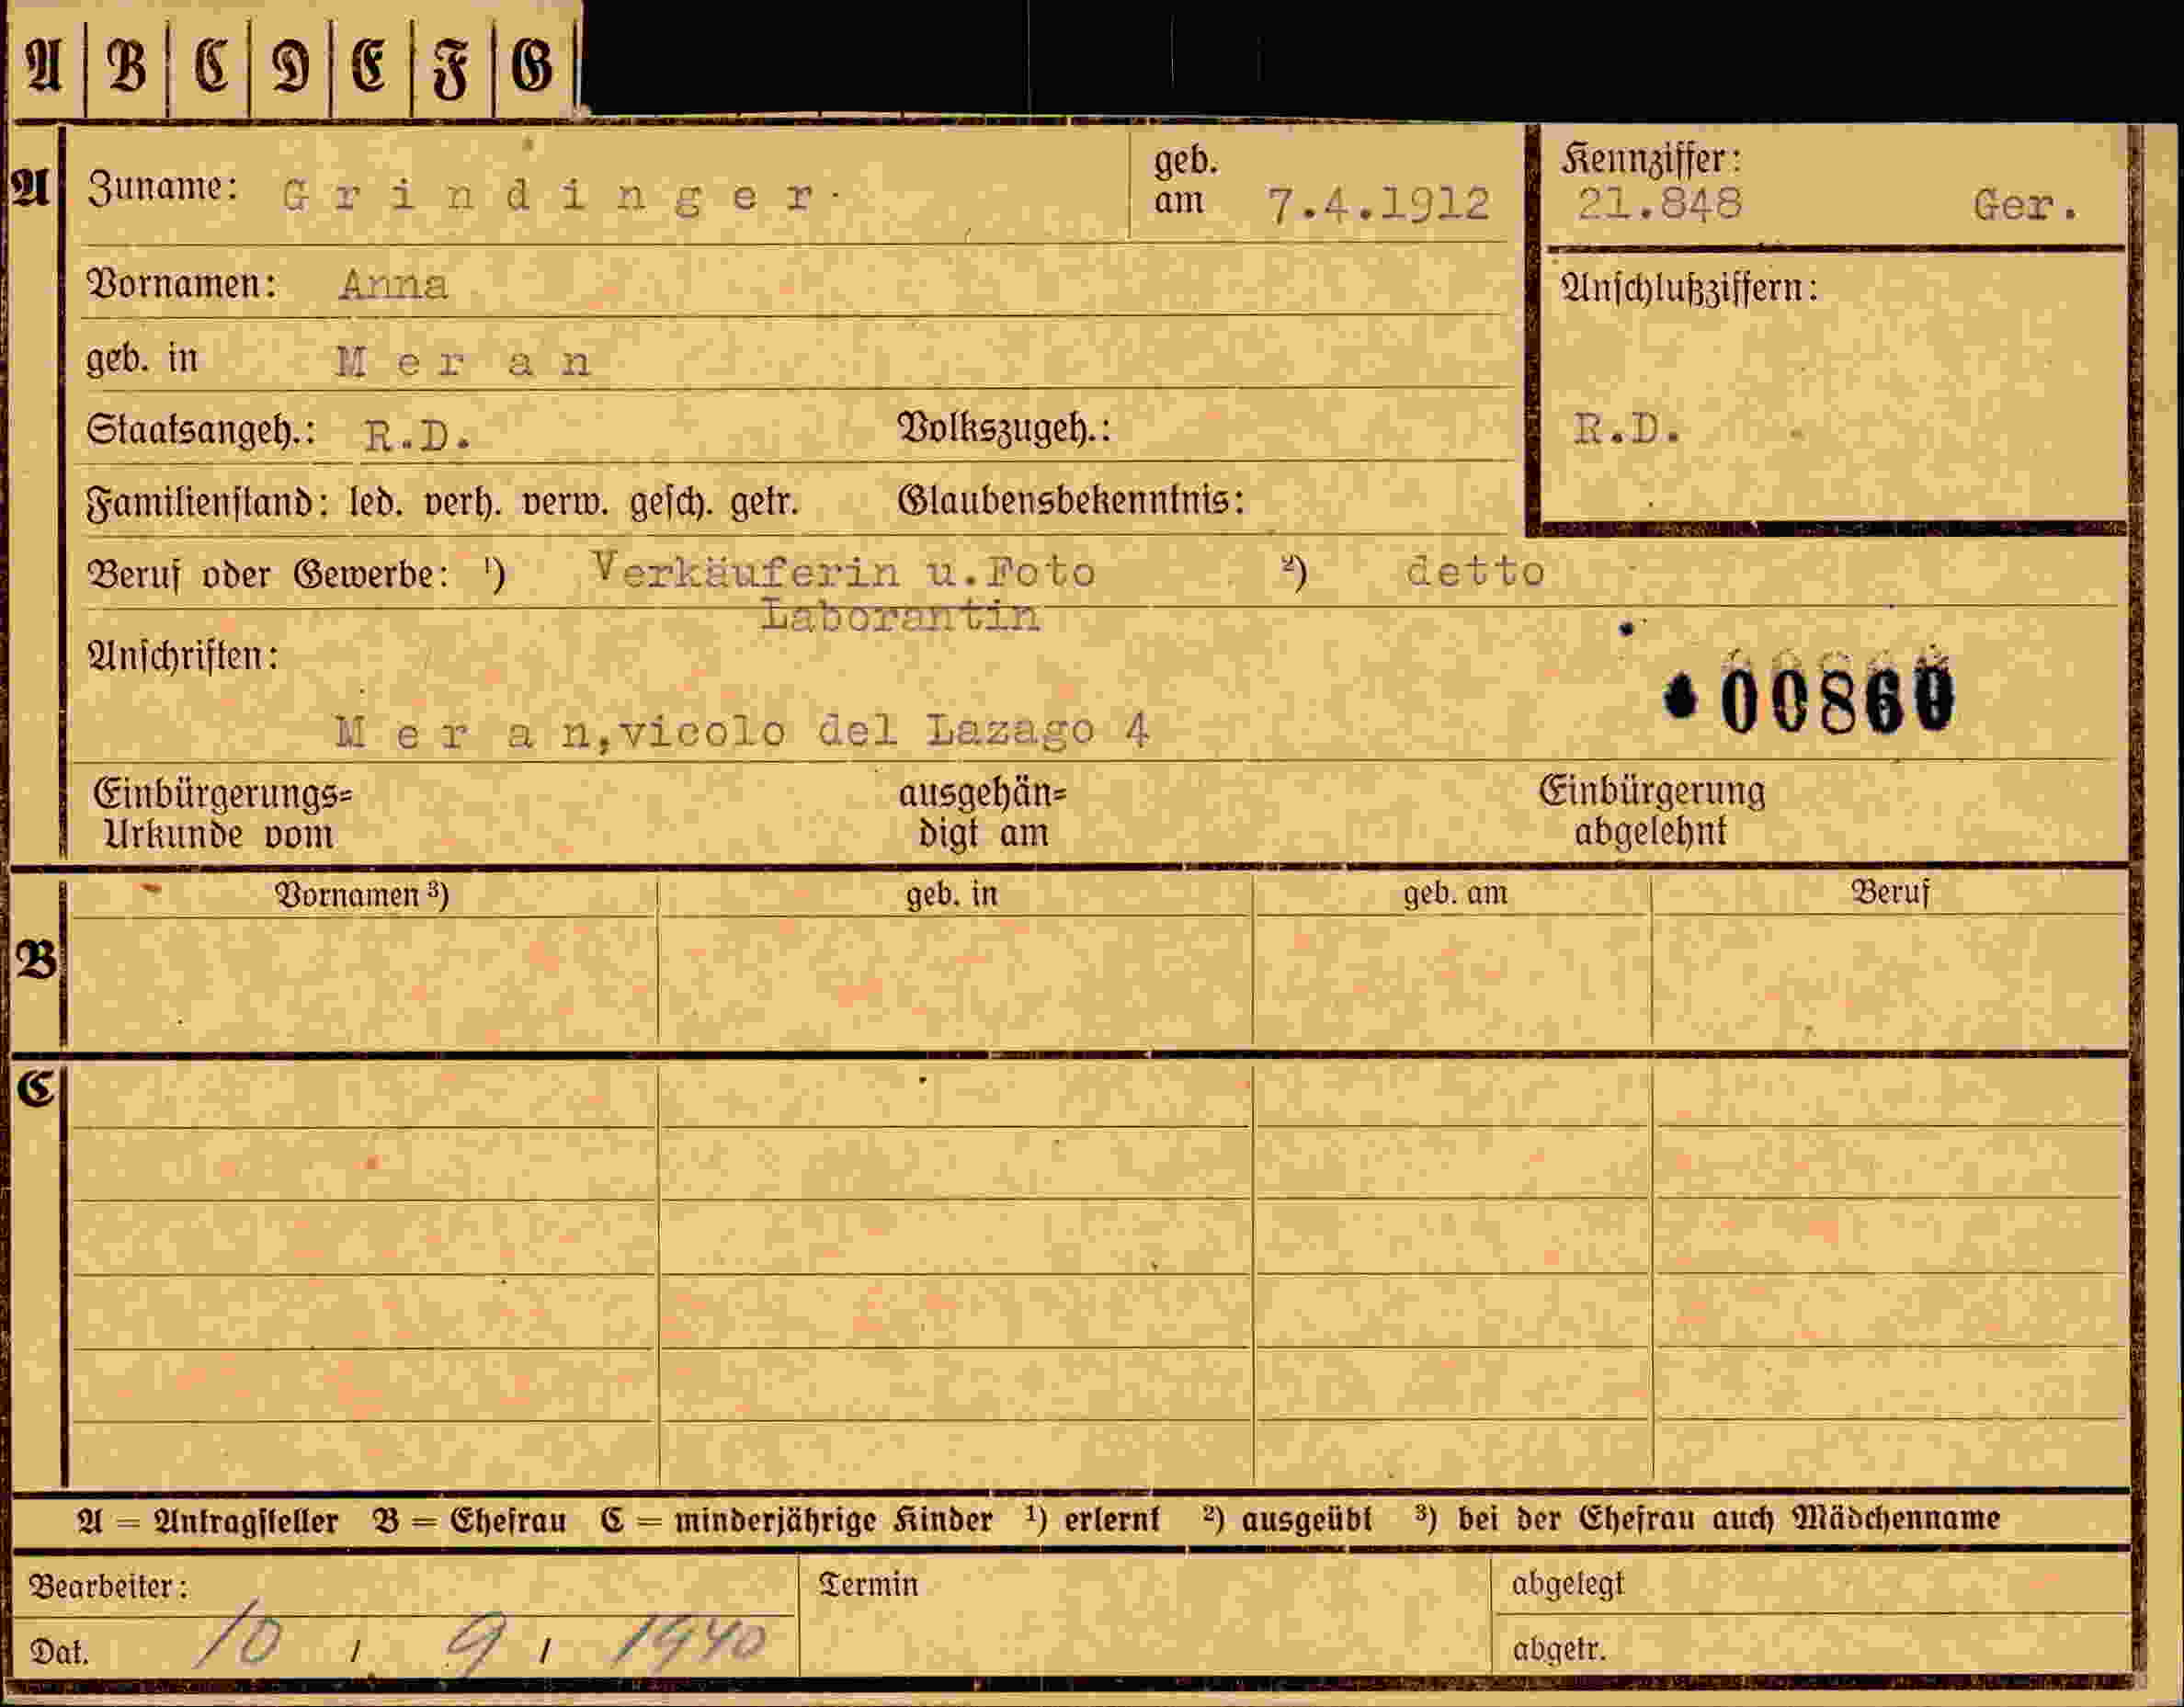 A | B | C | D | E | F | G
A
Zuname: Grindinger.
geb. am 7.4.1912
Kennziffer:
21.848 Ger.
Vornamen: Anna
Anschlußziffern:
geb. in Meran
Staatsangeh.: R.D. Volkszugeh.:
R.D.
Familienstand: led. verh. verw. gesch. getr. Glaubensbekenntnis:
Beruf oder Gewerbe: ¹) Verkäuferin u.Foto ²) detto
Laborantin
Anschriften:
00860
Meran,vicolo del Lazago 4
Einbürgerungs=
Urkunde vom
ausgehän=
digt am
Einbürgerung
abgelehnt
B
Vornamen ³) geb. in geb. am Beruf
C
A = Antragsteller B = Ehefrau C = minderjährige Kinder ¹) erlernt ²) ausgeübt ³) bei der Ehefrau auch Mädchenname
Bearbeiter: Termin abgelegt
Dat. 10 / 9 / 1940 abgetr.